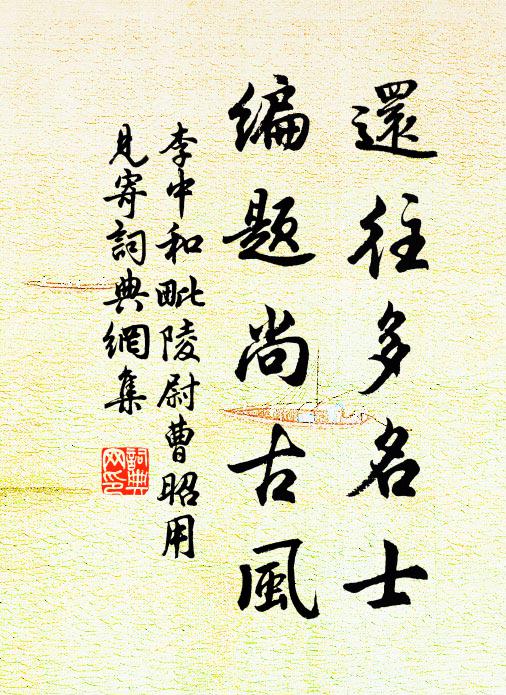 還往多名士
編题尚古風
李中和毗陵尉曹昭用
見寄詞典網集
詞典网印